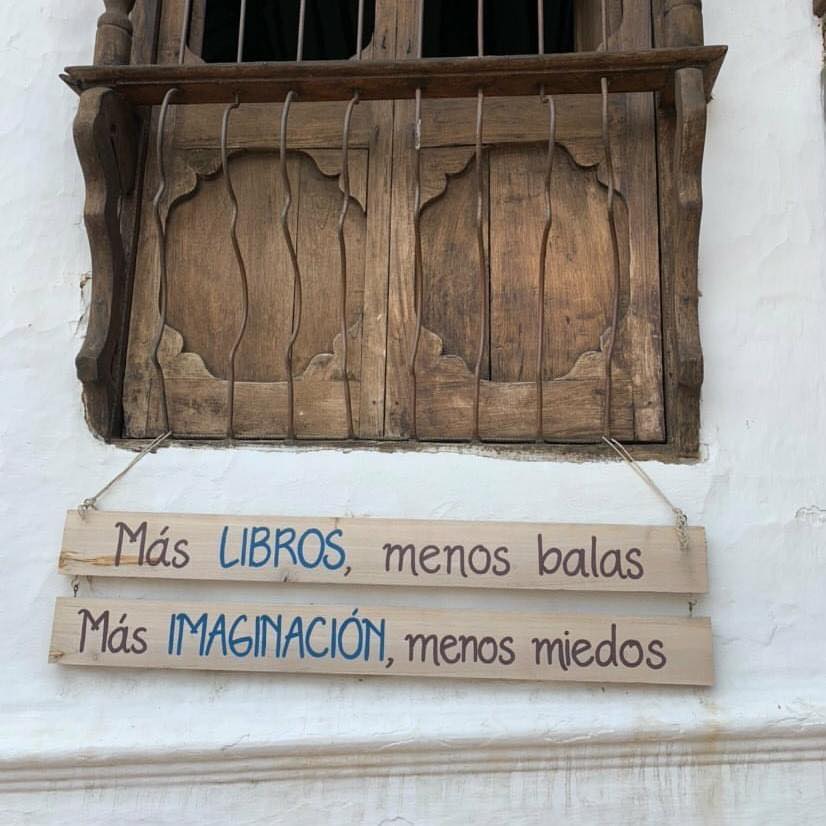 Más LIBROS, menos balas
Más IMAGINACIÓN, menos miedos